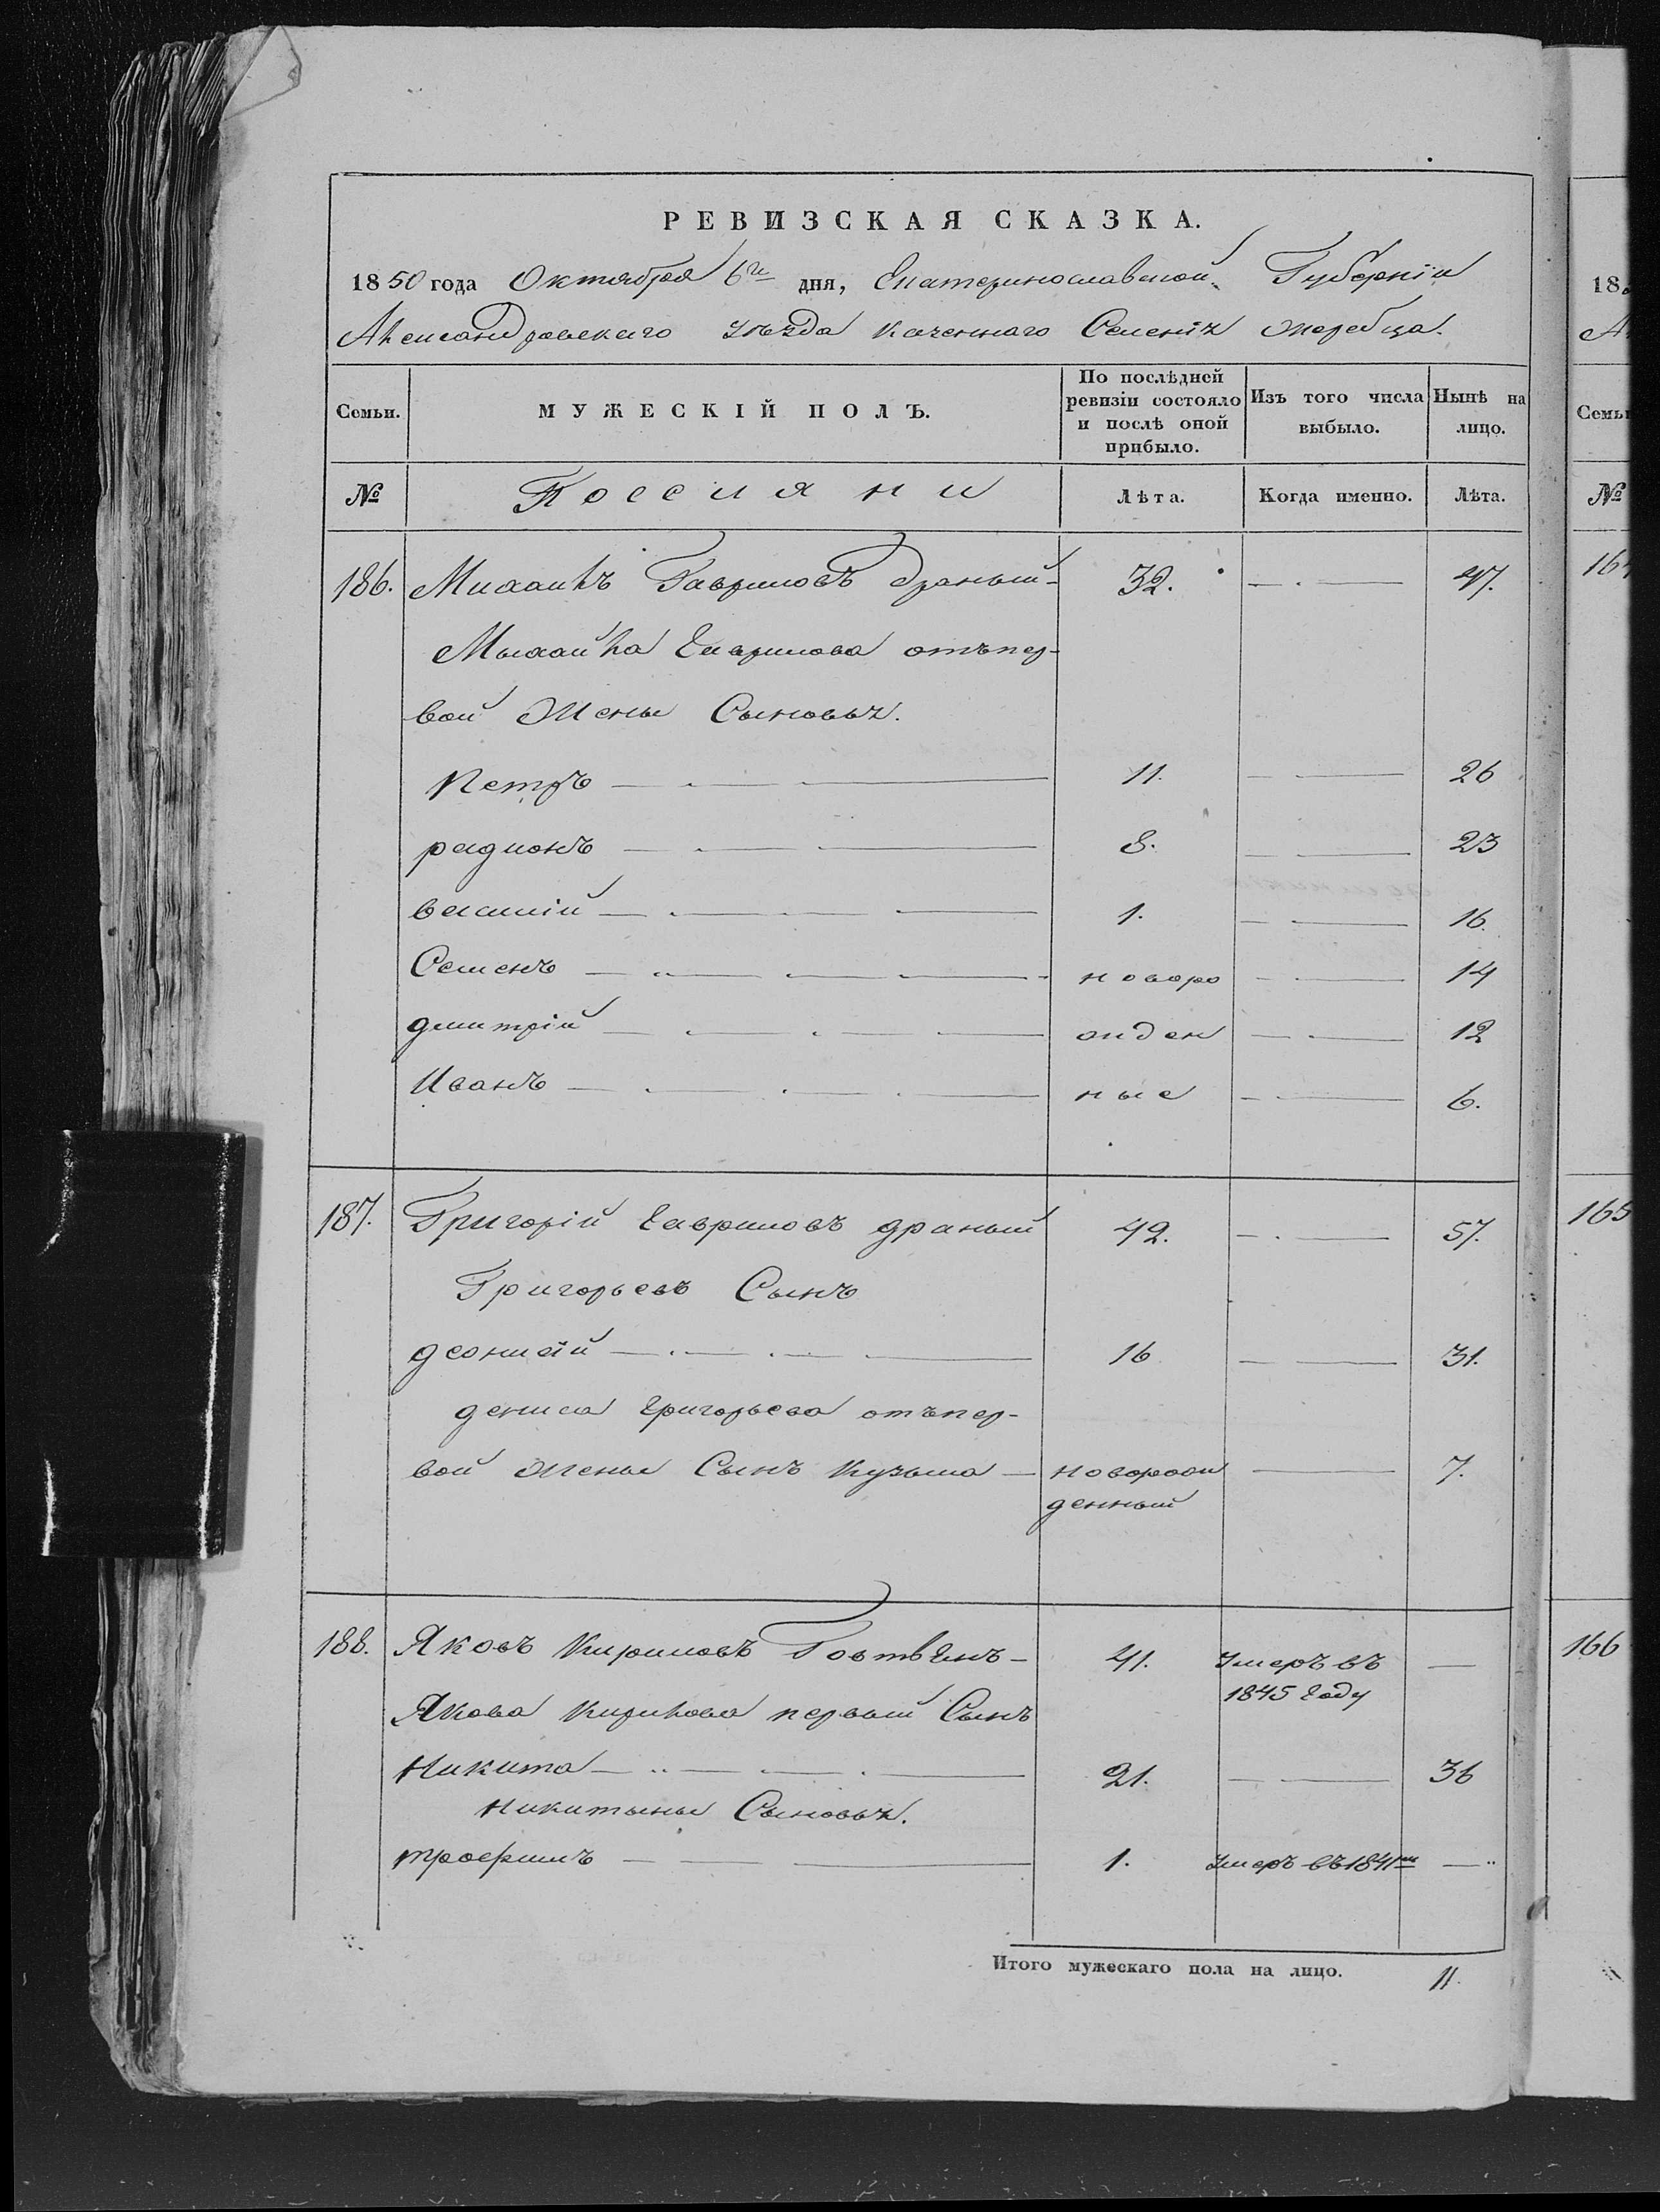 РЕВИЗСКАЯ СКАЗКА.
1850 года Октября 6го дня, Екатеринославской Губерніи
Александровскаго уѣзда казеннаго Селенія Жеребца.
Семьи. МУЖЕСКІЙ ПОЛЪ. По послѣдней ревизіи состояло и послѣ оной прибыло. Изъ того числа выбыло. Нынѣ на лицо.
№ Лѣта. Когда именно. Лѣта.
186. Михаилъ Гавриловъ Драный 32. — 47.
Михаила Гаврилова отъ пер-
вой Жены Сыновья.
Петръ 11. — 26
радионъ 8. — 23
василій 1. — 16.
Семенъ новоро — 14
дмитрій жден — 12
Иванъ ные — 6.
187. Григорій Гавриловъ драный 42. — 57.
Григорьевъ Сынъ
деонисій 16 — 31.
дениса Григорьева отъ пер-
вой Жены Сынъ Кузьма — новорож — 7.
денный
188. Яковъ Кириловъ 41. Умеръ въ —
1845 Году
Якова Кирилова первый Сынъ
Никита 21. — 36
Никитины Сыновья.
трофимъ 1. Умеръ въ 1841м —
Итого мужескаго пола на лицо. 11.
18
А
Семьи
№
164
165
166